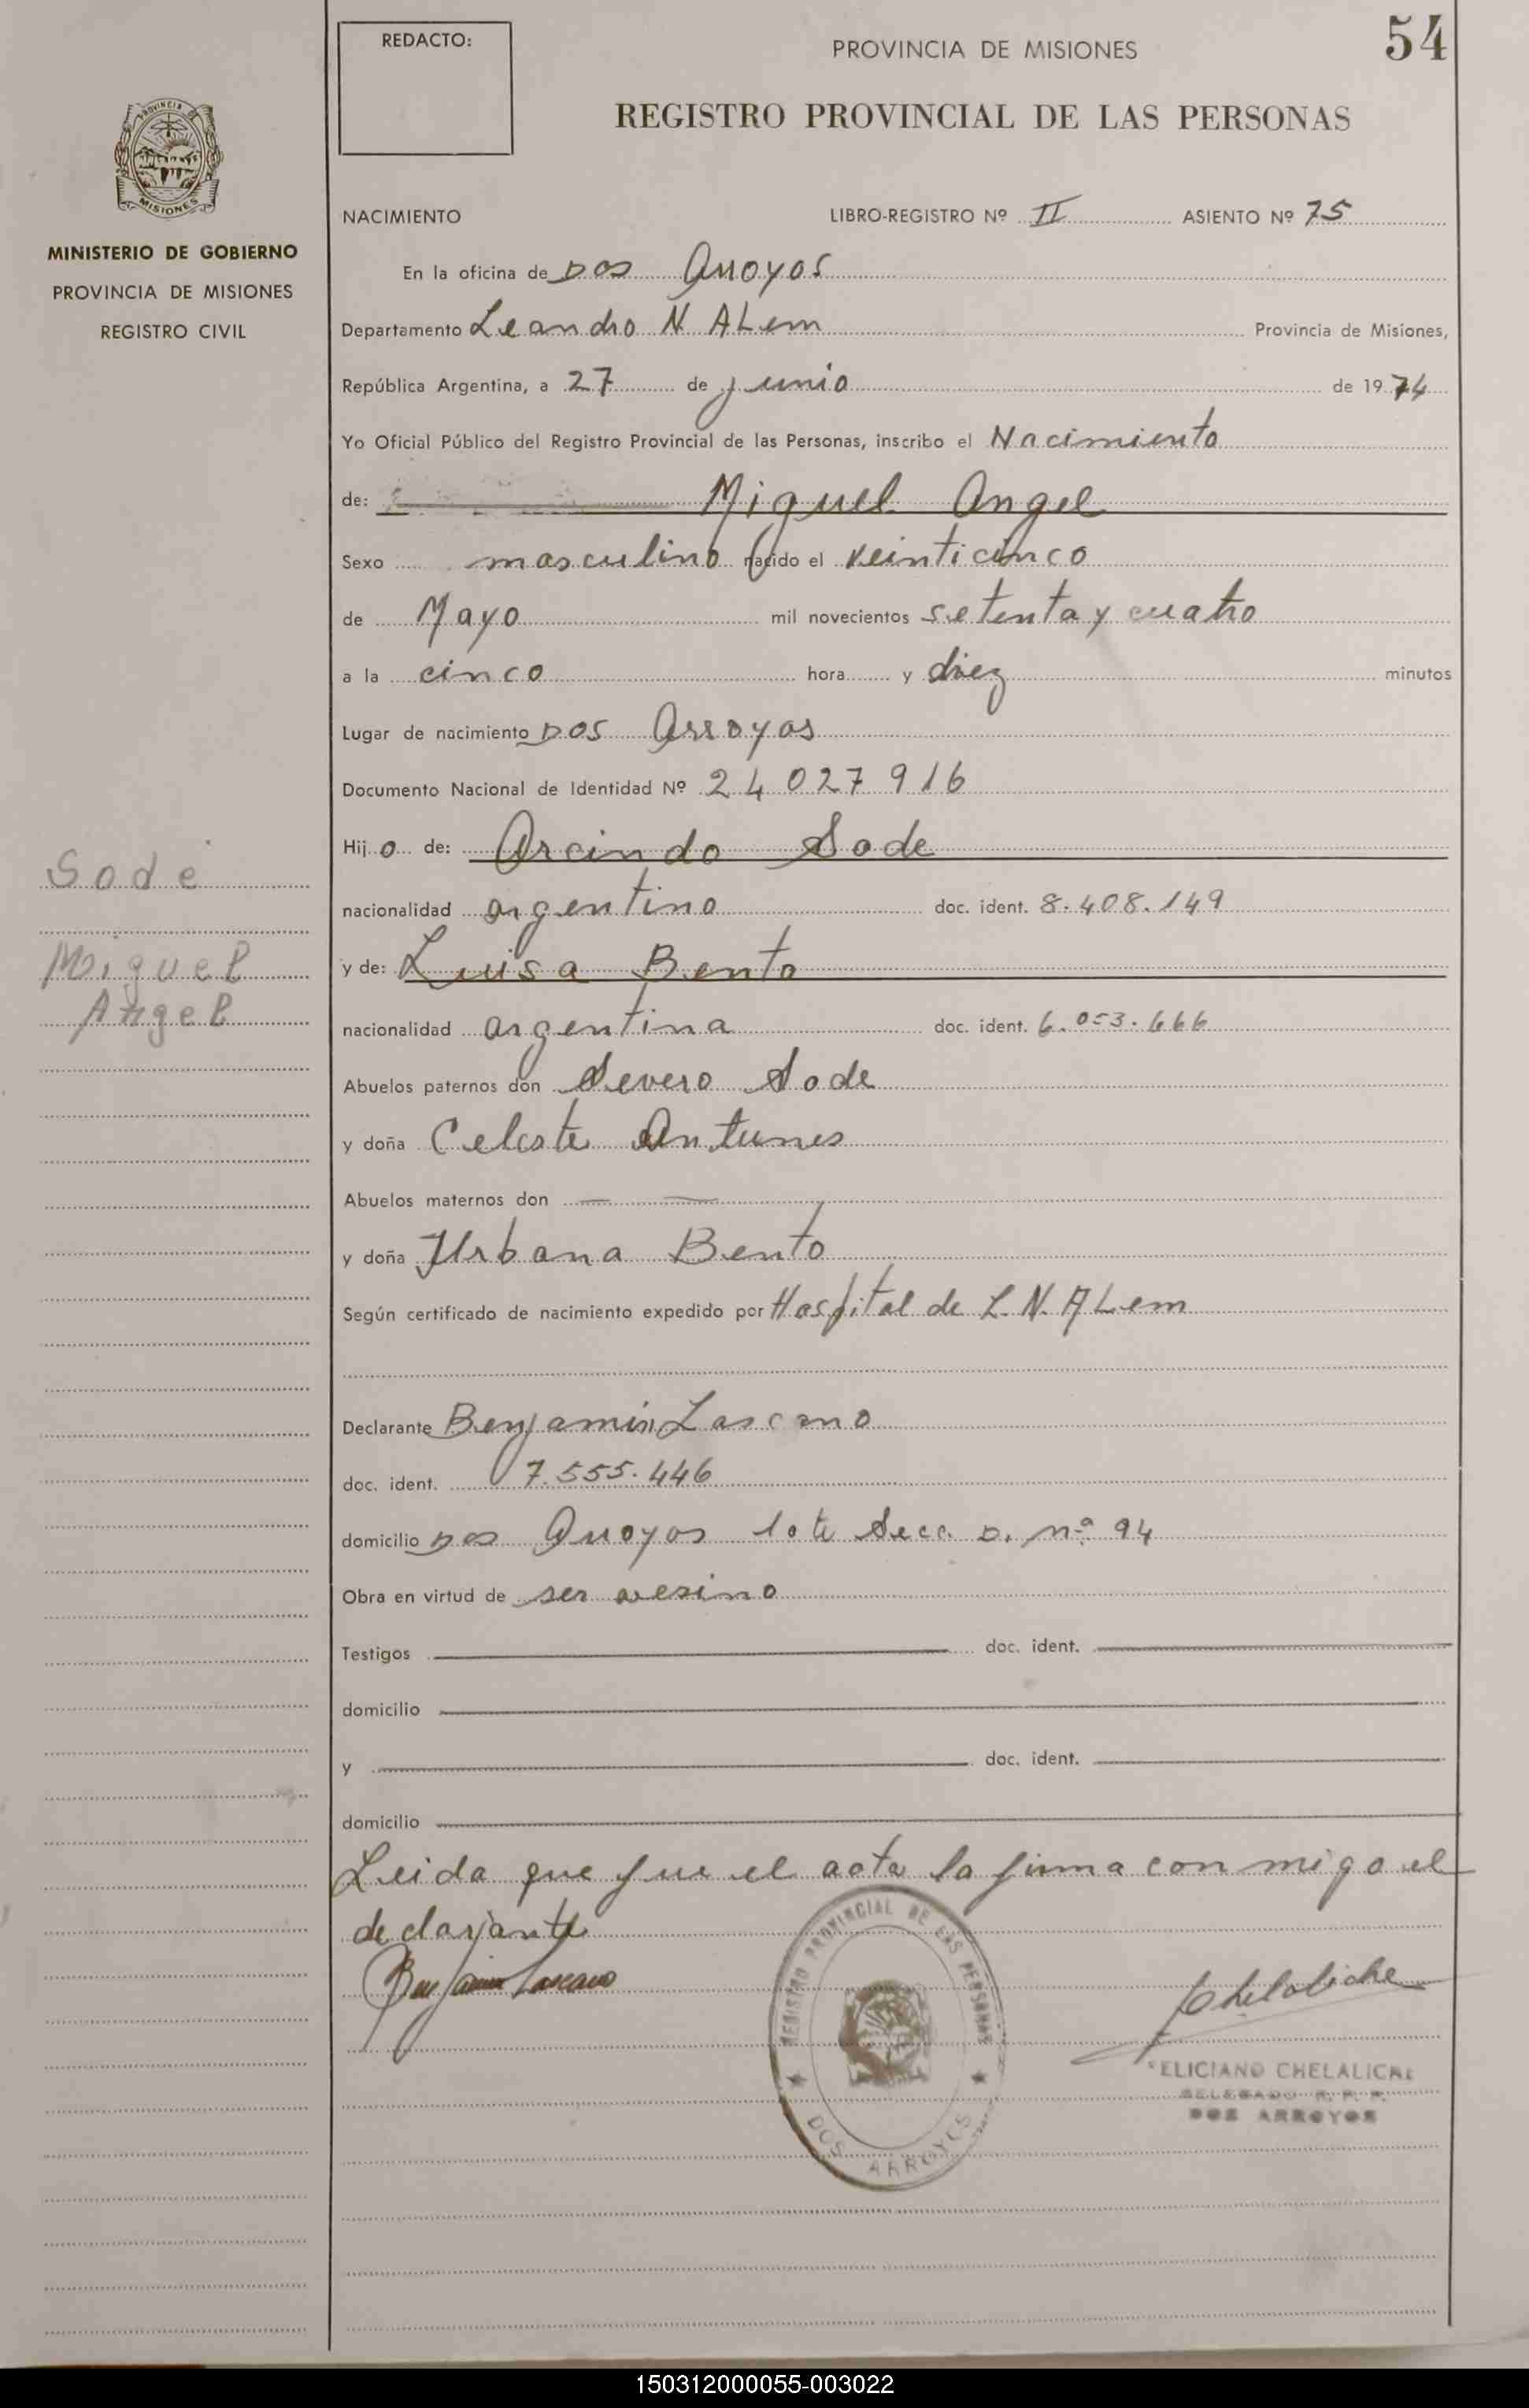 REDACTO:
PROVINCIA DE MISIONES
54
REGISTRO PROVINCIAL DE LAS PERSONAS
PROVINCIA
MISIONES
MINISTERIO DE GOBIERNO
PROVINCIA DE MISIONES
REGISTRO CIVIL
NACIMIENTO LIBRO-REGISTRO Nº II ASIENTO Nº 75
En la oficina de Dos Arroyos
Departamento Leandro N. ALem Provincia de Misiones,
República Argentina, a 27 de junio de 1974
Yo Oficial Público del Registro Provincial de las Personas, inscribo el Nacimiento
de: Miguel Angel
Sexo masculino nacido el veinticinco
de Mayo mil novecientos setenta y cuatro
a la cinco hora y diez minutos
Lugar de nacimiento Dos Arroyos
Documento Nacional de Identidad Nº 24 027 916
Hijo de: Arcindo Sode
nacionalidad argentino doc. ident. 8.408.149
y de: Luisa Bento
nacionalidad argentina doc. ident. 6.053.666
Abuelos paternos don Severo Sode
y doña Celeste Antunes
Abuelos maternos don — —
y doña Urbana Bento
Según certificado de nacimiento expedido por Hospital de L. N. ALem
Declarante Benjamin Lascano
doc. ident. 7.555.446
domicilio Dos Arroyos lote Secc. D. nº 94
Obra en virtud de ser vesino
Testigos doc. ident.
domicilio
y doc. ident.
domicilio
Leida que fue el acta la firma con migo el
declarante
Benjamin Lascano
Chelaliche
Sode
Miguel
Angel
REGISTRO PROVINCIAL DE LAS PERSONAS
DOS ARROYOS
FELICIANO CHELALICHE
DELEGADO R. P. P.
DOS ARROYOS
150312000055-003022